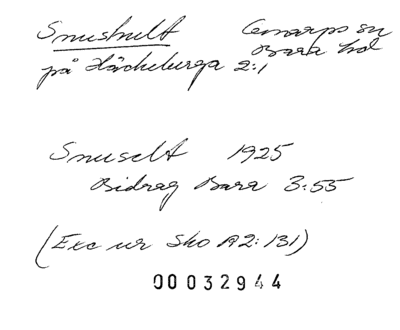 Smushult Genarps sn
Bara hd
på Häckeberga 2:1
Smuselt 1925
Bidrag Bara 3:55
(Exc ur Sko A2:131)
00032944